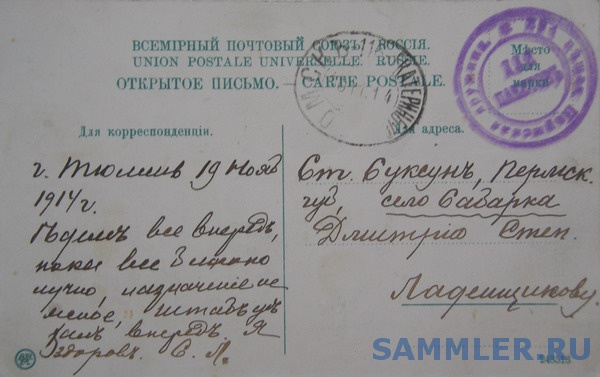 ВСЕМІРНЫЙ ПОЧТОВЫЙ СОЮЗЪ. РОССІЯ.
UNION POSTALE UNIVERSELLE. RUSSIE.
ОТКРЫТОЕ ПИСЬМО. — CARTE POSTALE.
Мѣсто
для
марки
ОМСКЪ
Для корреспонденціи.
Для адреса.
г. Тюмень 19 Нояб
1914 г.
Ѣдемъ все впередъ,
пока все благопо
лучно, назначение не
ясное, штабъ уѣ
халъ впередъ. Я
здоровъ. С. Л.
Ст. Суксунъ, Пермск.
губ, село Сабарка
Дмитрію Степ.
Ладейщикову.
SAMMLER.RU